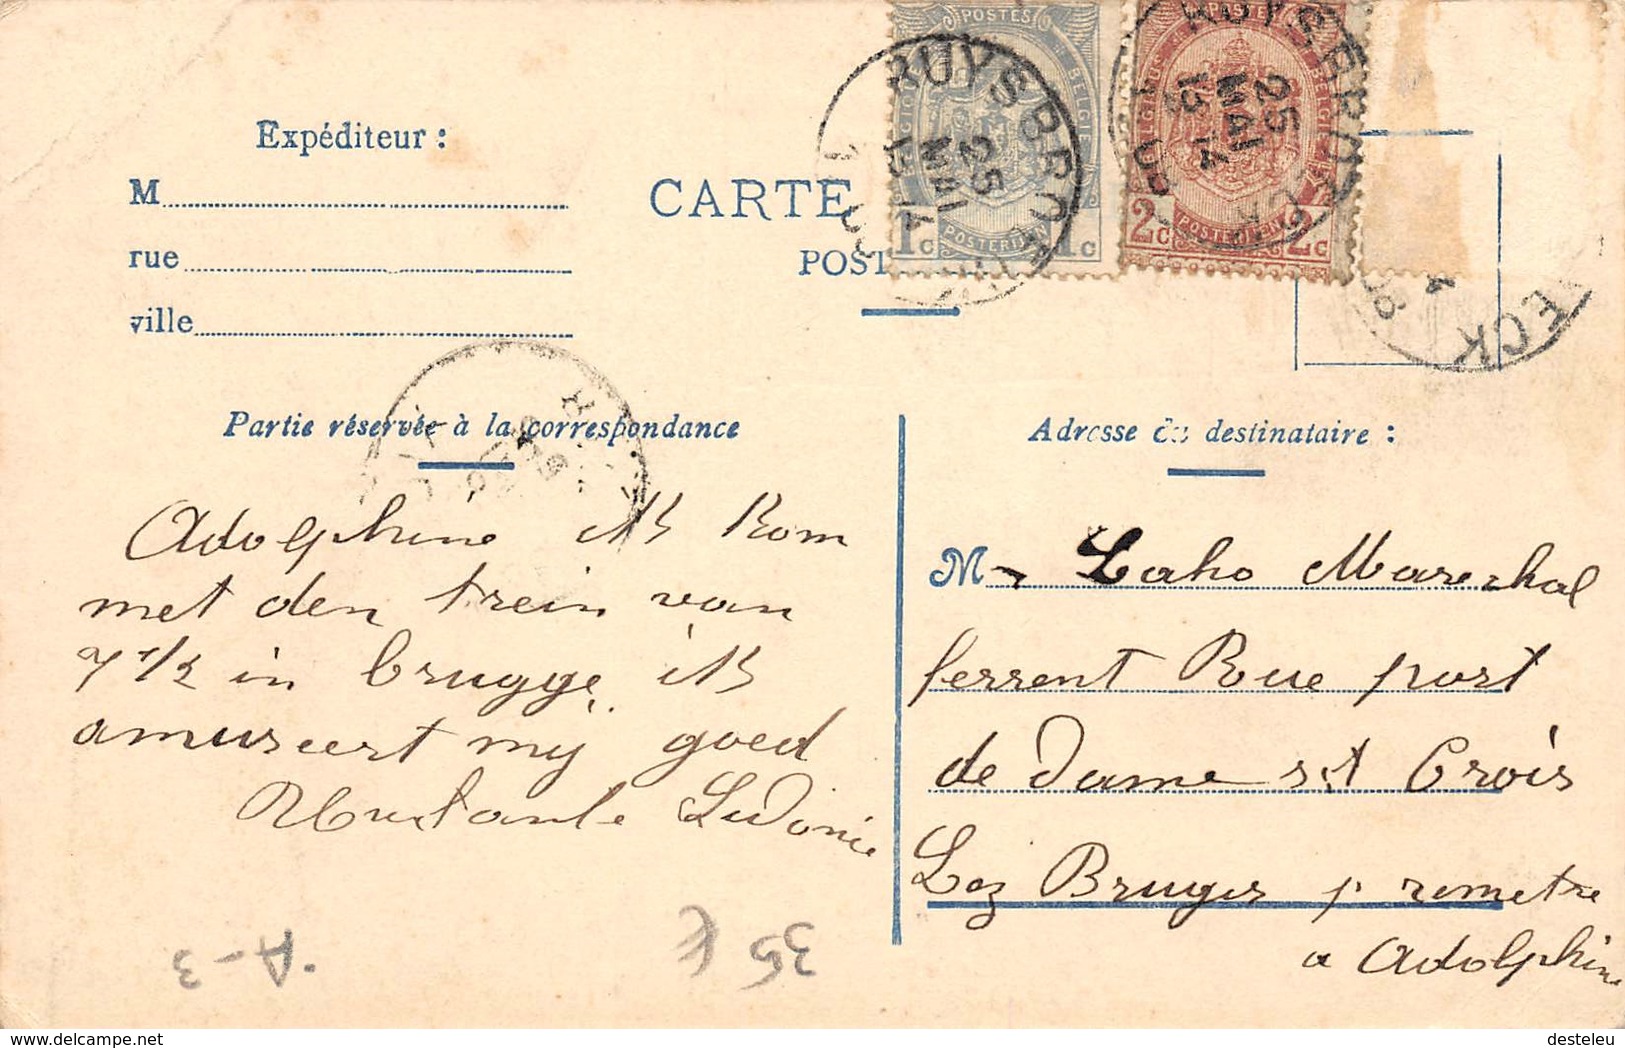 Expéditeur :
M
rue
ville
CARTE
POST
POSTES
BELGIE
1c POSTERIJEN 1c
RUYSBROECK
25
MAI
POSTES
BELGIE
2c POSTERIJEN 2c
25
MAI
13 14
ECK
Partie réservée à la correspondance
Adresse du destinataire :
Adolphine ik kom
met den trein van
7 1/2 in brugge ik
amuseert mij goed
Ludonie
M Laho Marechal
ferrent Rue port
de Dame st Crois
Lez Bruges p remetre
a Adolphine
35 €
A-3
www.delcampe.net
desteleu